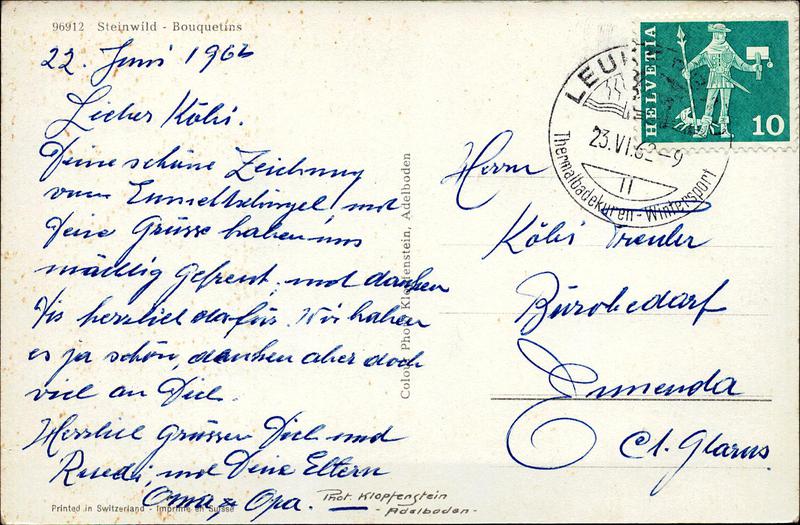 96912 Steinwild - Bouquetins
22. Juni 1962
Lieber Köbi.
Deine schöne Zeichnung
vom und
Deine Grüsse haben uns
mächtig gefreut, und danken
Dir herzlich dafür. Wir haben
es ja schön, danken aber doch
viel an Dich.
Herzlich grüssen Dich und
Ruedi, und Deine Eltern
Oma & Opa.
Printed in Switzerland - Imprimé en Suisse
Phot. Klopfenstein
- Adelboden -
Color Photo Klopfenstein, Adelboden
HELVETIA
10
LEUK
23.VI.62-9
Thermalbadekuren - Wintersport
Herrn
Köbi
Bürobedarf
Ennenda
Ct. Glarus